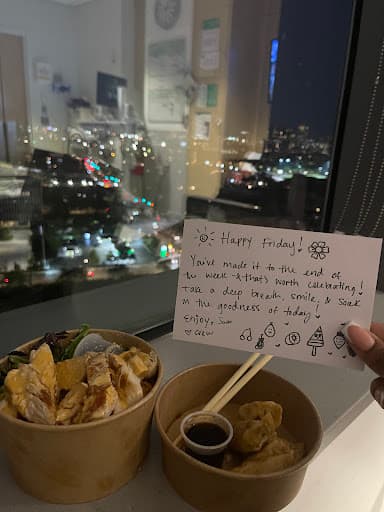 Happy Friday!
You've made it to the end of
the week & that's worth celebrating!
Take a deep breath, smile, & soak
in the goodness of today!
Enjoy,
♡ Crew